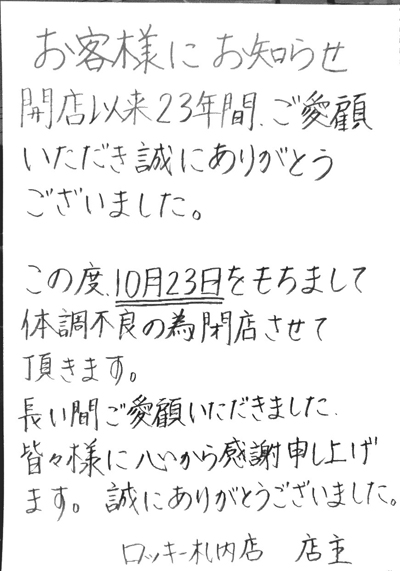 お客様にお知らせ
開店以来23年間、ご愛顧
いただき誠にありがとう
ございました。
この度、10月23日をもちまして
体調不良の為閉店させて
頂きます。
長い間ご愛顧いただきました、
皆々様に心から感謝申し上げ
ます。誠にありがとうございました。
ロッキー札内店 店主